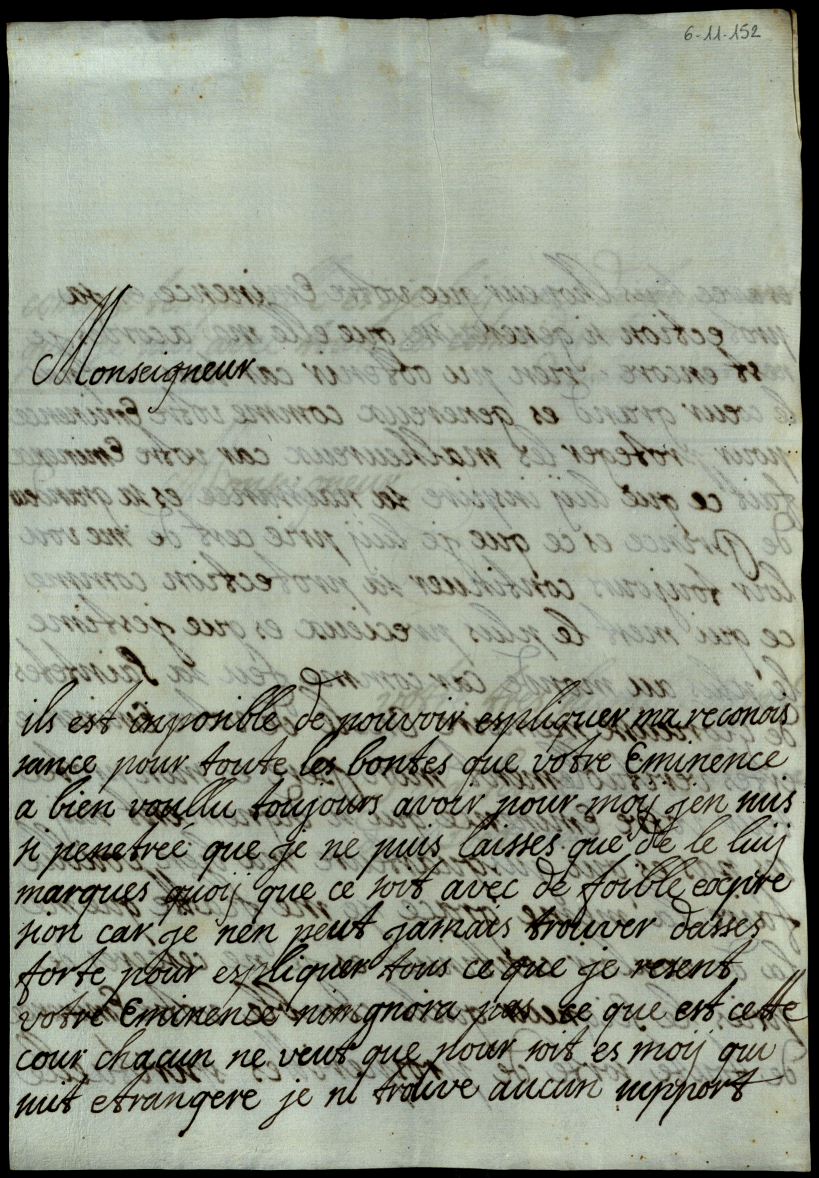 6-11-152
Monseigneur
ils est inposible de pouvoir espliquer ma reconois
sance pour toute les bontes que votre Eminence
a bien voullu toujours avoir pour moy jen suis
si penetreé que je ne puis laisses que de le luy
marques quoy que ce soit avec de foible expre
sion car je nen peut jamais trouver dasses
forte pour espliquer tous ce que je resent
votre Eminence nimgnora pas ce que est cette
cour chacun ne veut que pour soit es moy qui
suit etrangere je ni trouve aucun support